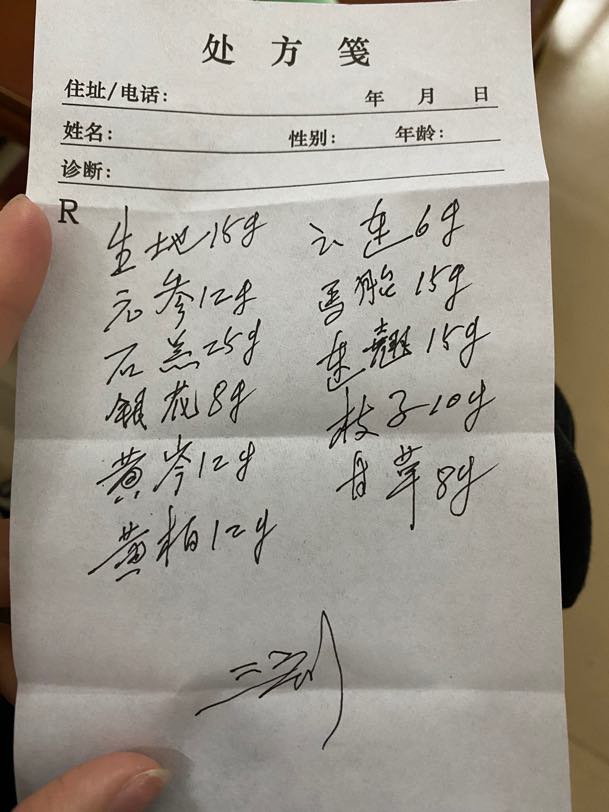 处方笺
住址/电话： 年 月 日
姓名： 性别： 年龄：
诊断：
R
生地15g 云连6g
元参12g 马胎15g
石羔25g 连翘15g
银花8g 枝子10g
黄岑12g 甘草8g
黄柏12g
三剂